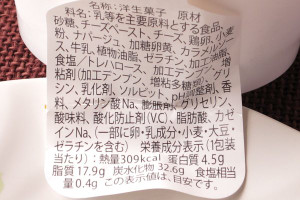 名称:洋生菓子 原材
料名:乳等を主要原料とする食品、
砂糖、チーズペースト、チーズ、鶏卵、小麦
粉、ナパージュ、加糖卵黄、カラメルソー
ス、牛乳、植物油脂、ゼラチン、加工油脂、
食塩/トレハロース、加工デンプン、増
粘剤(加工デンプン、増粘多糖類)、グリ
シン、乳化剤、ソルビット、pH調整剤、香
料、メタリン酸Na、膨脹剤、グリセリン、
酸味料、酸化防止剤(V.C)、脂肪酸、カゼ
インNa、(一部に卵・乳成分・小麦・大豆・
ゼラチンを含む) 栄養成分表示(1包装
当たり):熱量309kcal 蛋白質4.5g
脂質17.9g 炭水化物32.6g 食塩相当
量0.4g この表示値は、目安です。